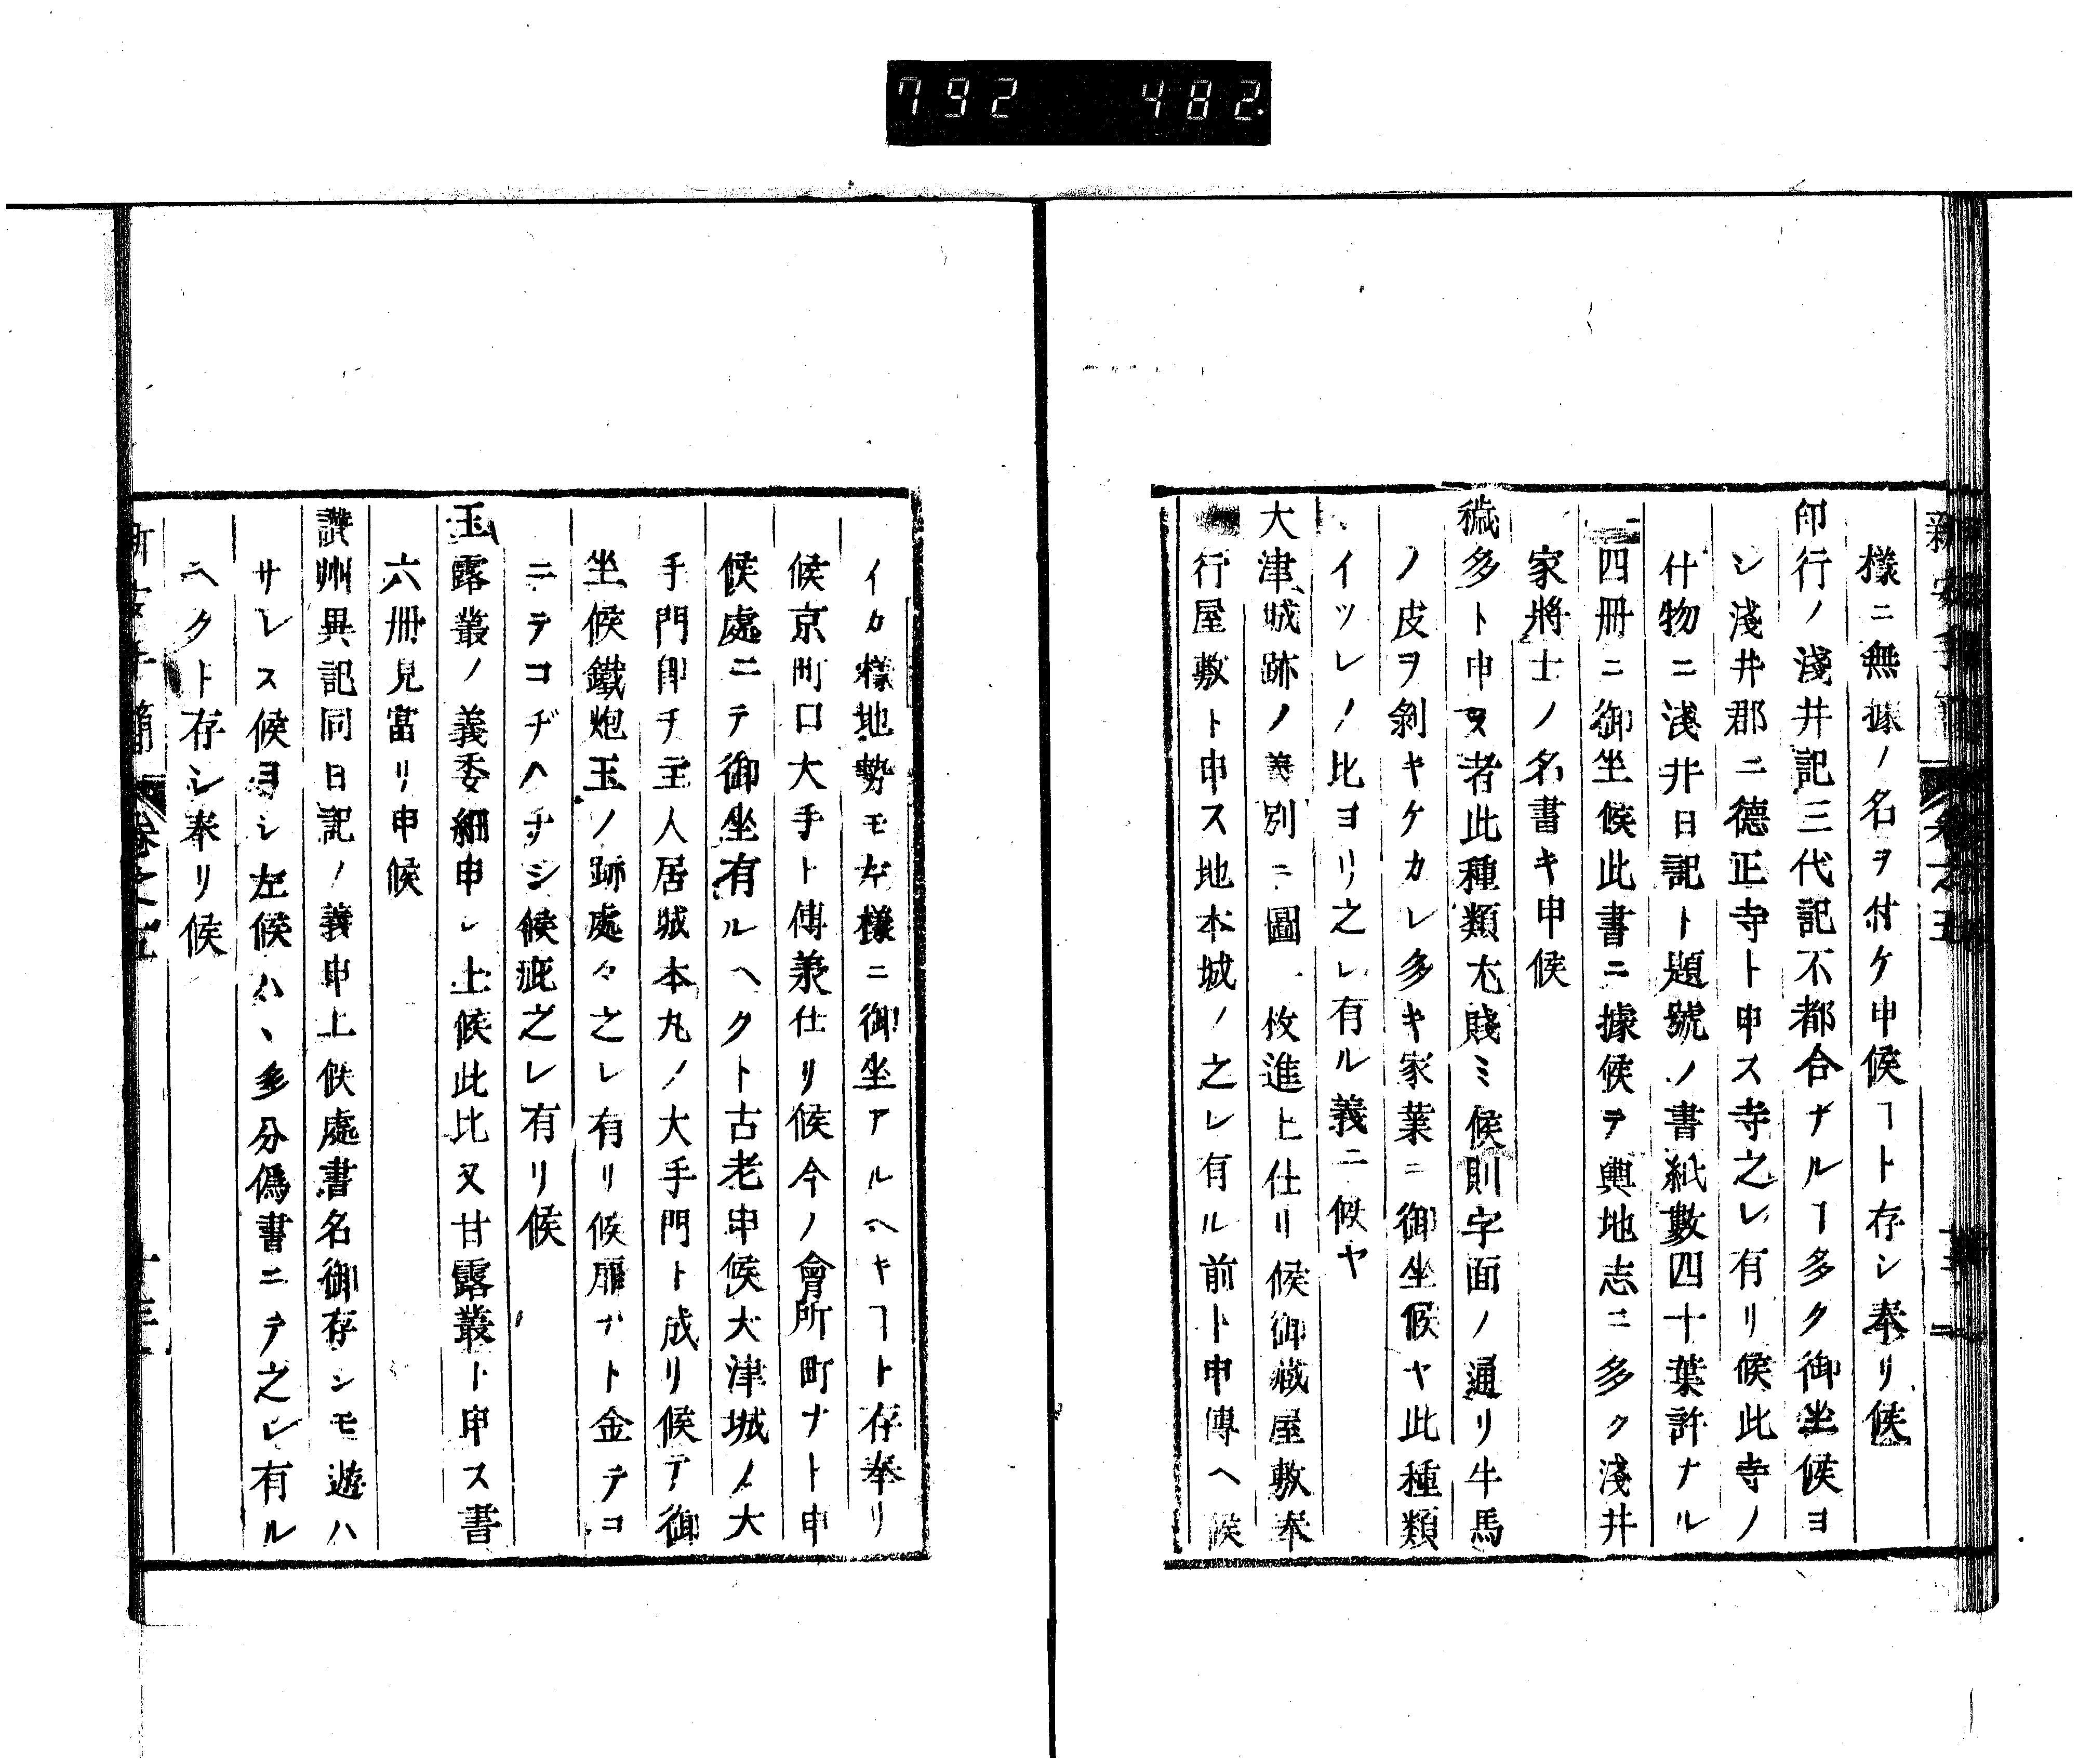 792 482
樣ニ無據ノ名ヲ付ケ申候ヿト存シ奉リ候
印行ノ淺井記三代記不都合ナルヿ多ク御坐候ヨ
シ淺井郡ニ德正寺ト申ス寺之レ有リ候此寺ノ
什物ニ淺井日記ト題號ノ書紙數四十葉許ナル
四冊ニ御坐候此書ニ據候テ輿地志ニ多ク淺井
家將士ノ名書キ申候
穢多ト申ス者此種類尤賤ミ候則字面ノ通リ牛馬
ノ皮ヲ剝キケカレ多キ家業ニ御坐候ヤ此種類
イツレノ比ヨリ之レ有ル義ニ候ヤ
大津城跡ノ義別ニ圖一枚進上仕リ候御藏屋敷奉
行屋敷ト申ス地本城ノ之レ有ル前ト申傳ヘ候
イカ樣地勢モ左樣ニ御坐アルヘキヿト存奉リ
候京町口大手ト傳義仕リ候今ノ會所町ナト申
候處ニテ御坐有ルヘクト古老申候大津城ノ大
手門卽チ主人居城本丸ノ大手門ト成リ候テ御
坐候鐵炮玉ノ跡處々之レ有リ候扉ナト金テコ
ニテコヂハナシ候疵之レ有リ候
玉露叢ノ義委細申シ上候此比又甘露叢ト申ス書
六冊見當リ申候
讃州異記同日記ノ義申上候處書名御存シモ遊ハ
サレス候ヨシ左候ハヽ多分僞書ニテ之レ有ル
ヘクト存シ奉リ候